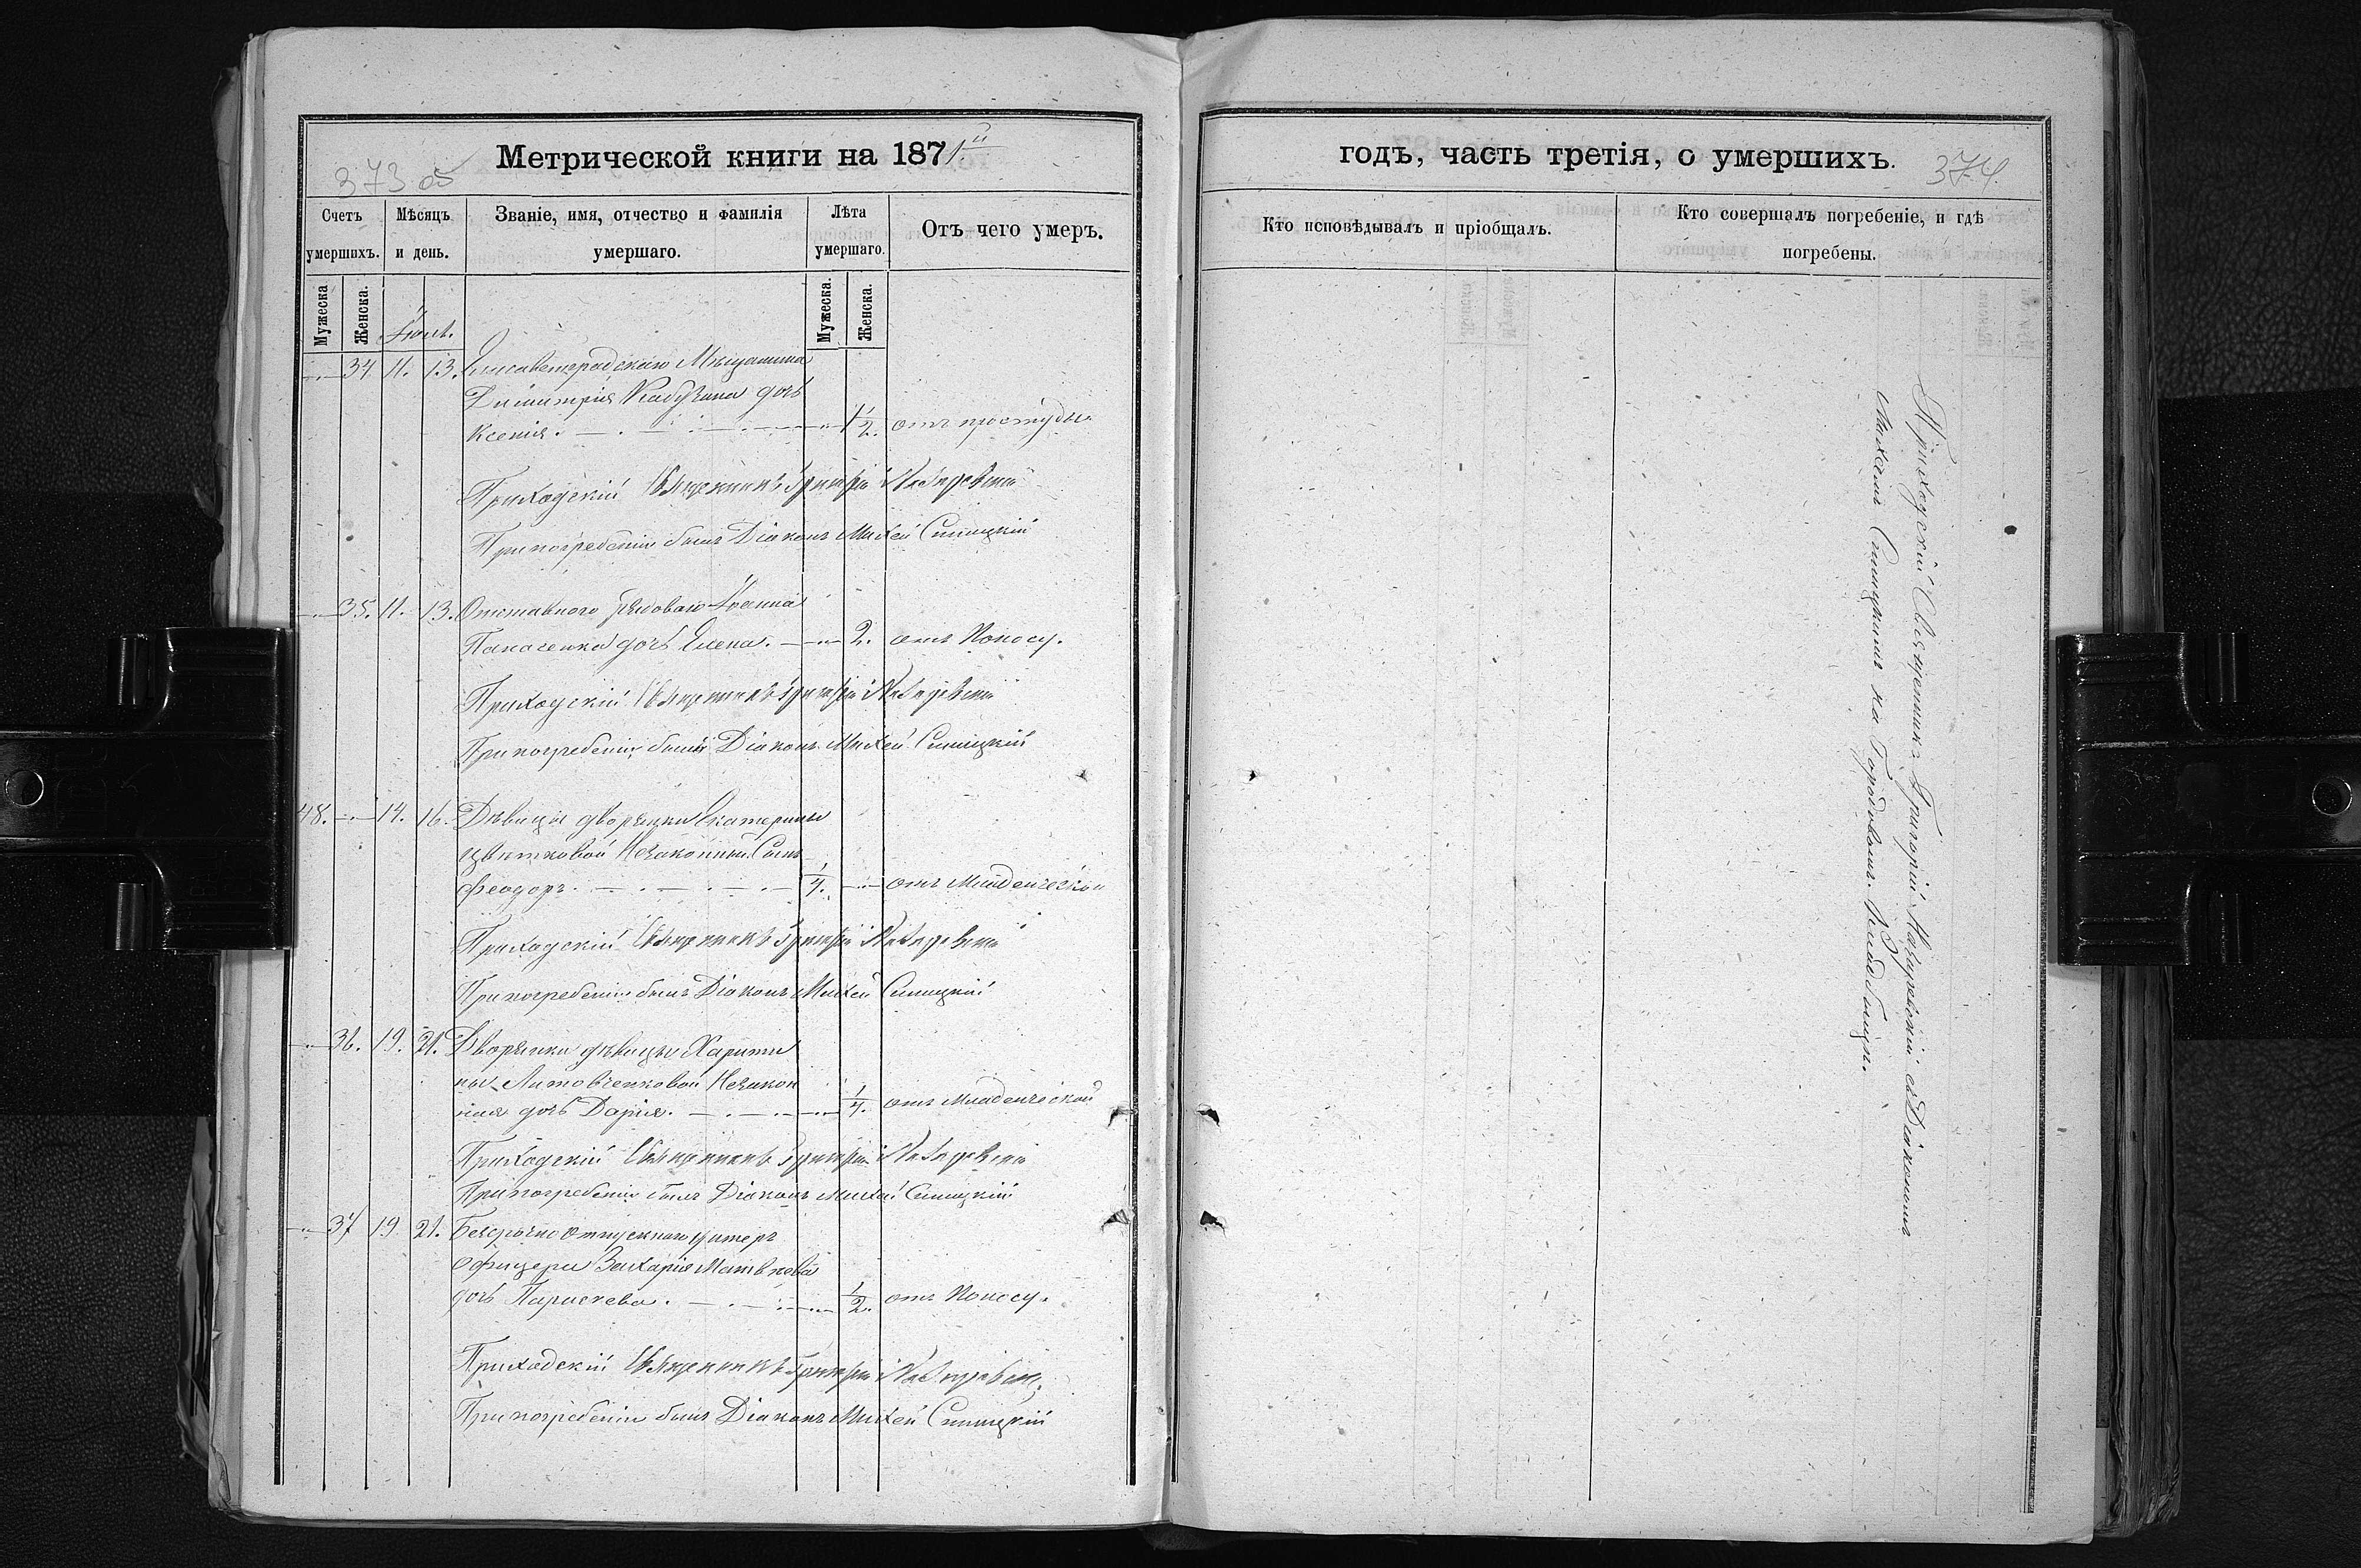 Метрической книги на 1871й
373 об
Счетъ умершихъ.
Мѣсяцъ и день.
Званіе, имя, отчество и фамилія умершаго.
Лѣта умершаго.
Отъ чего умеръ.
Мужеска
Женска.
Мужеска.
Женска.
Іюль.
34 11. 13. Елисаветградскаго Мѣщанина
Димитрія дочь
Ксенія. 1/2. отъ простуды
Приходскій Священникъ Григорій
При погребеніи былъ Діаконъ Михей Синицкій
35. 11. 13. Отставного рядоваго Іоанна
Панасенка дочь Елена. 2. отъ Поносу.
Приходскій Священникъ Григорій
При погребеніи былъ Діаконъ Михей Синицкій
48. 14. 16. Дѣвицы дворянки Екатерины
Цвѣтковой Незаконный Сынъ
Феодоръ. 1/4. отъ Младенческой
Приходскій Священникъ Григорій
При погребеніи былъ Діаконъ Михей Синицкій
36. 19. 21. Дворянки дѣвицы Харити
ны Литовченковой Незакон
ная дочь Дарія. 1/4. отъ Младенческой
Приходскій Священникъ Григорій
При погребеніи былъ Діаконъ Михей Синицкій
37 19 21. Безсрочно отпускнаго унтеръ
офицера Захарія Матвѣева
дочь Параскева. 1/2. отъ Поносу.
Приходскій Священникъ Григорій
При погребеніи былъ Діаконъ Михей Синицкій
годъ, часть третія, о умершихъ.
374.
Кто исповѣдывалъ и пріобщалъ.
Кто совершалъ погребеніе, и гдѣ погребены.
Приходскій Священникъ Григорій съ Діакономъ
Михеемъ Синицкимъ на Городовомъ Кладбищѣ.